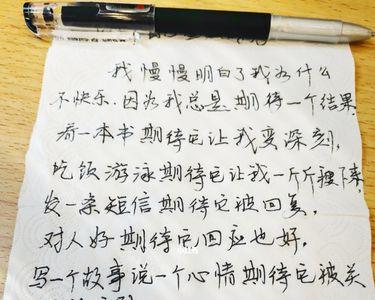 我慢慢明白了我为什么
不快乐.因为我总是期待一个结果.
看一本书期待它让我变深刻,
吃饭游泳期待它让我一斤斤瘦下来,
发一条短信期待它被回复,
对人好期待它回应也好.
写一个故事说一个心情期待它被关